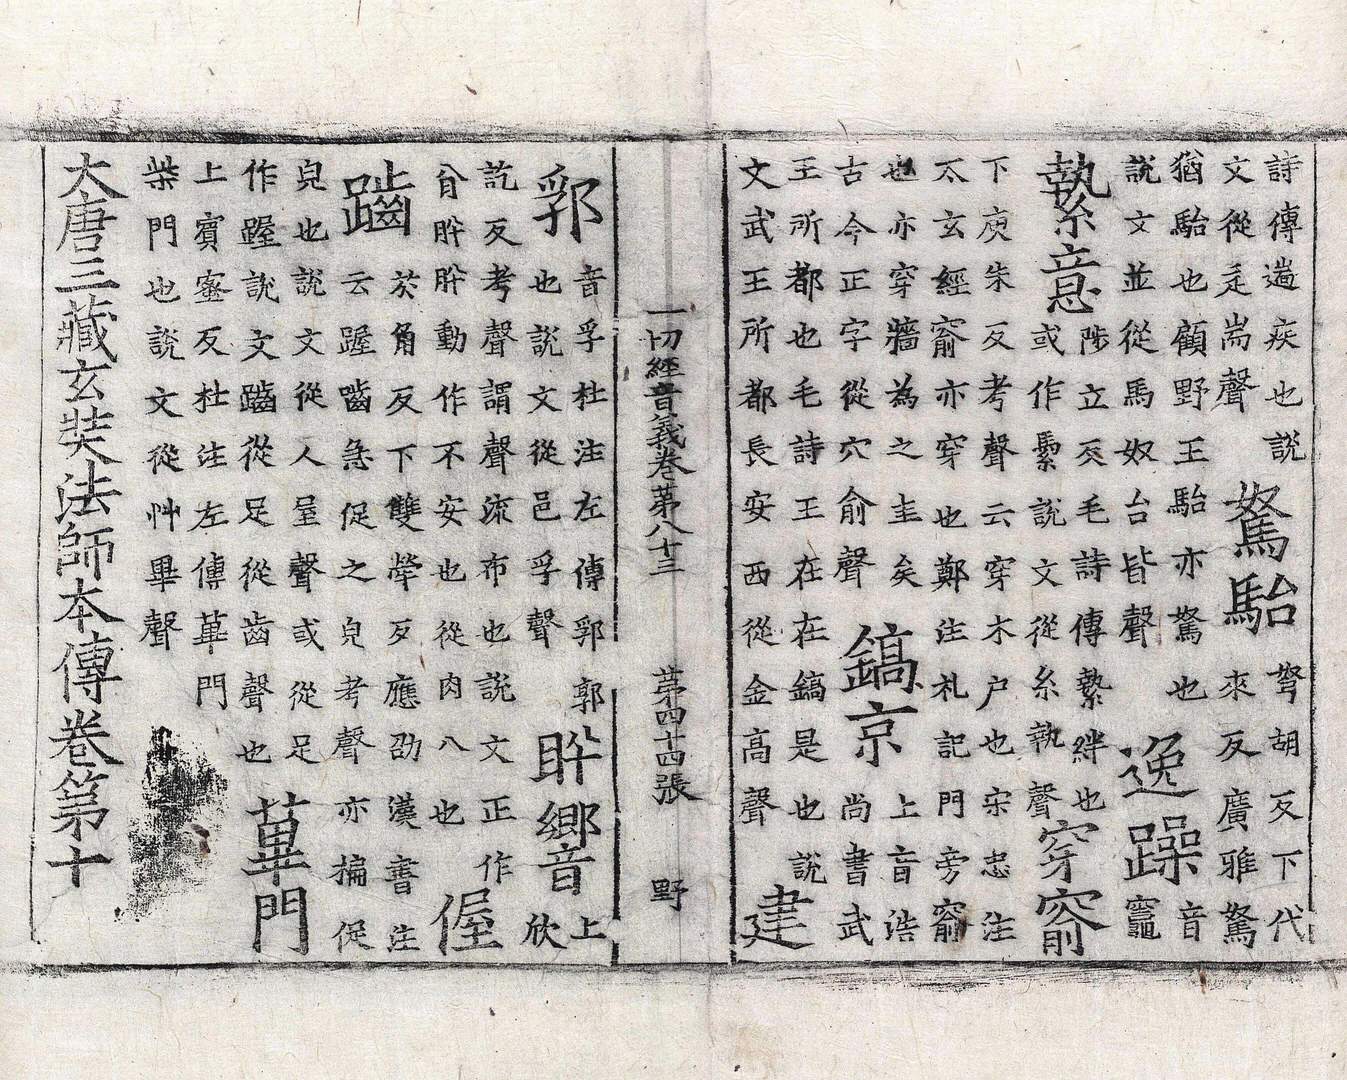 詩傳遄疾也說
文從辵耑聲
駑駘
弩胡反下代
來反廣雅駑
猶駘也顧野王駘亦駑也
說文並從馬奴台皆聲
逸躁
音
竈
縶意
陟立反毛詩傳縶絆也
或作馽說文從糸執聲
穿窬
下庾朱反考聲云穿木户也宋忠注
太玄經窬亦穿也鄭注礼記門旁窬
也亦穿牆為之圭矣
古今正字從穴俞聲
鎬京
上音浩
尚書武
王所都也毛詩王在在鎬是也說
文武王所都長安西從金高聲
建
一切經音義卷第八十三　第四十四張　野
郛
音孚杜注左傳郛郭
也說文從邑孚聲
肸鄉音
上
欣
訖反考聲謂聲流布也說文正作
肸肸動作不安也從肉八也
偓
䠡
角反下雙犖反應劭漢書注
云躍䠡急促之皃考聲亦褊促
皃也說文從人屋聲或從足
作躍說文䠡從足從齒聲也
蓽門
上賓蜜反杜注左傳蓽門
柴門也說文從艸畢聲
大唐三藏玄奘法師本傳卷第十